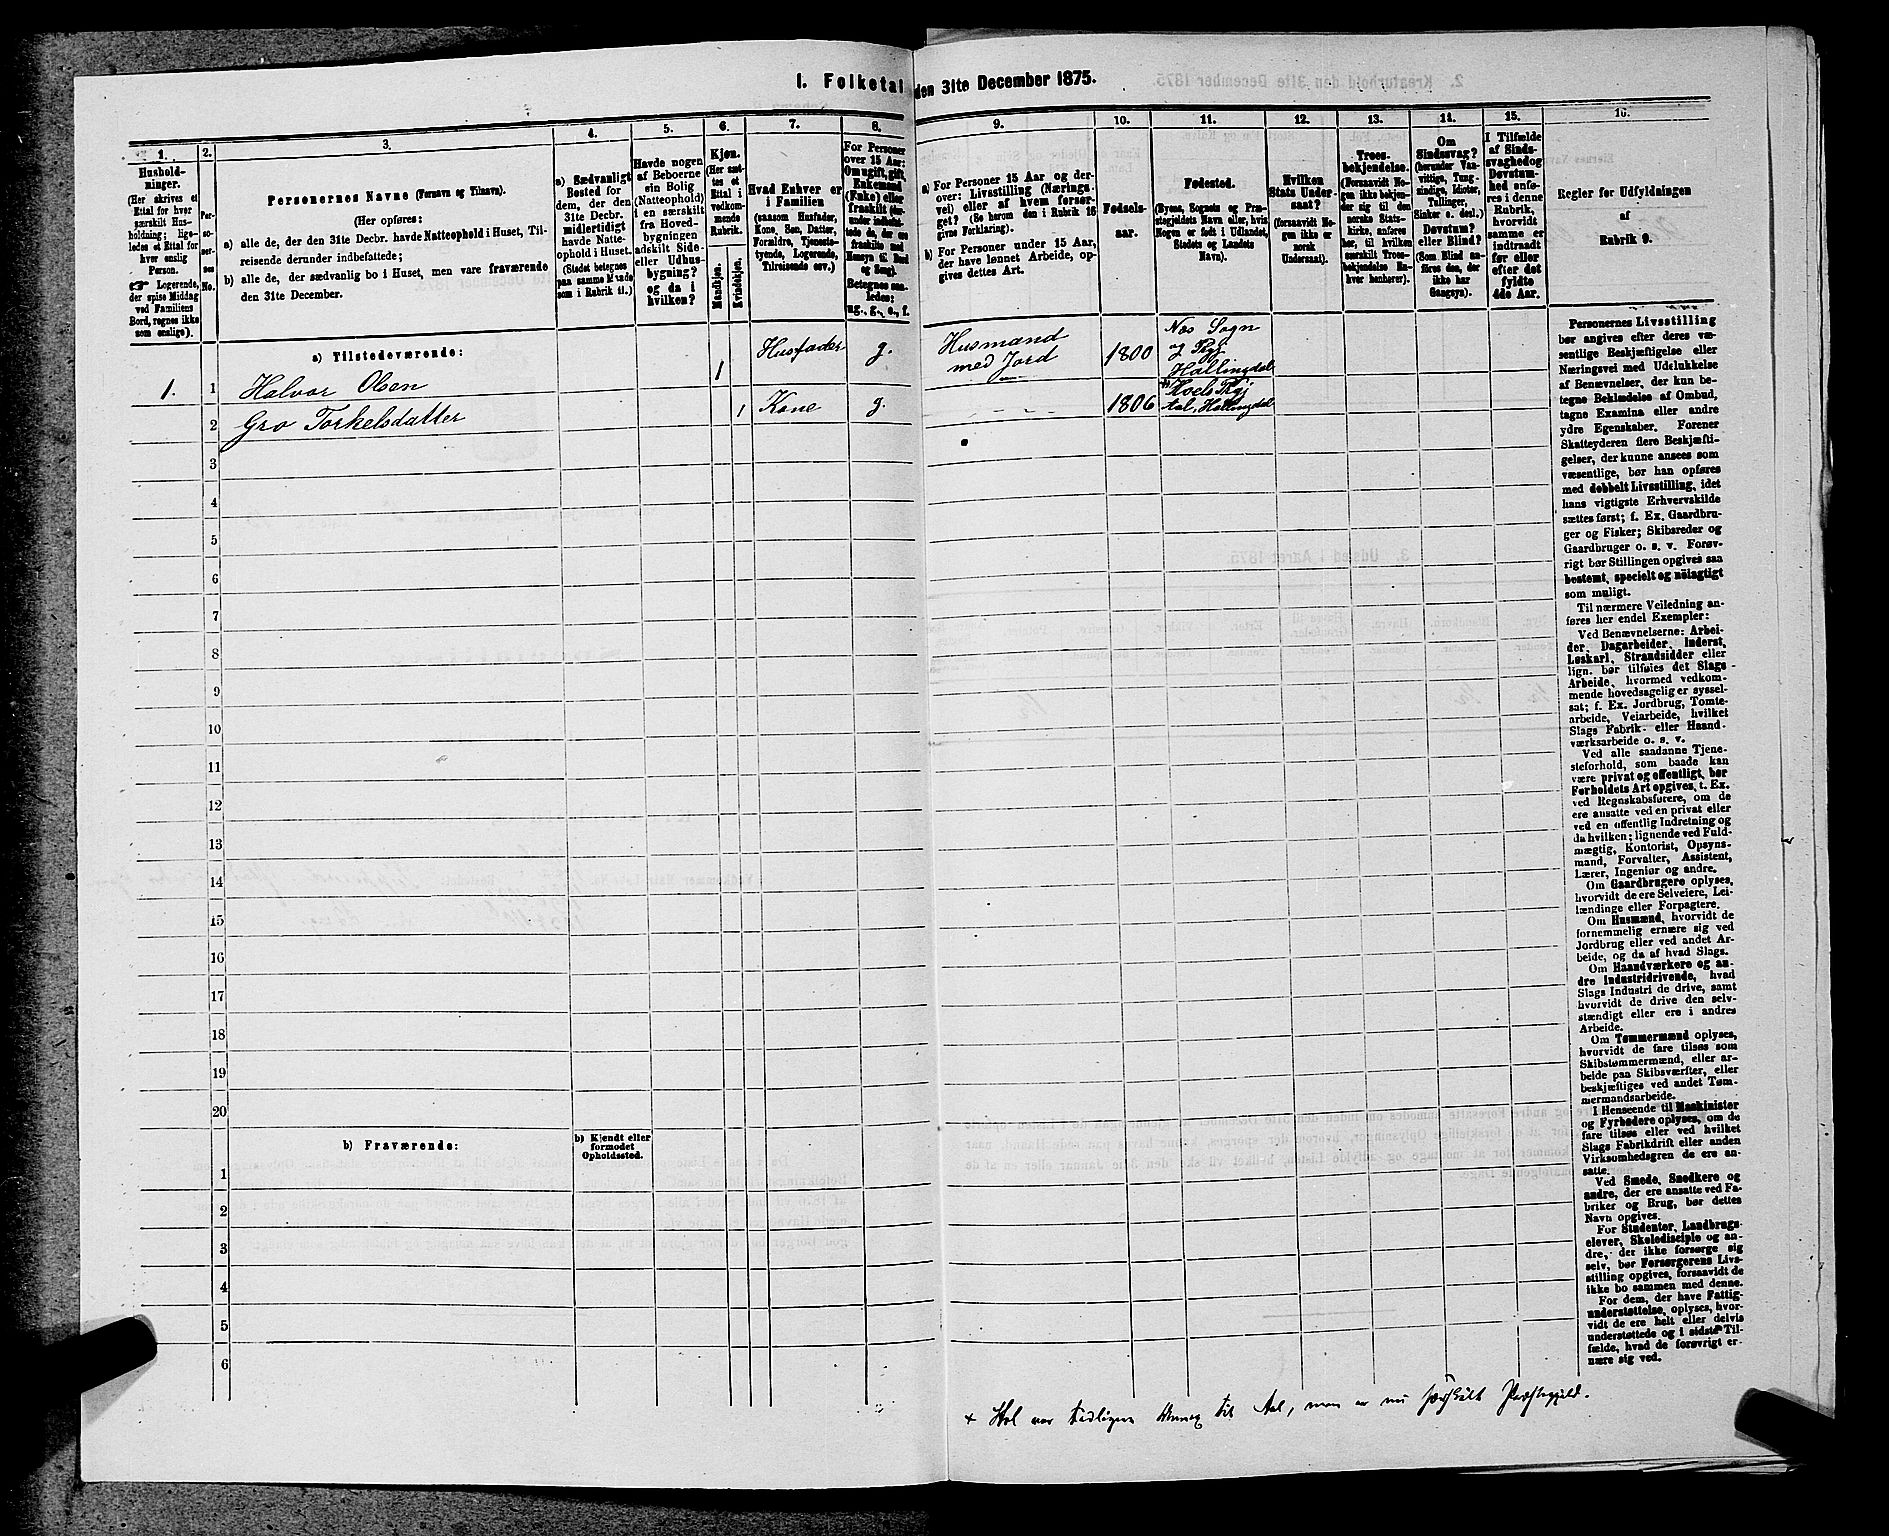 I. Folketal den 31te December 1875.
1.
Hushold-
ninger.
(Her skrives et
Ettal for hver
særskilt Hus-
holdning; lige-
ledes et Ettal for
hver enslig
Person.
☞ Logerende,
der spise Middag
ved Familiens
Bord, regnes ikke
som enslige).
2.
Per-
so-
ner-
nes
No.
3.
Personernes Navne (Fornavn og Tilnavn).
(Her opføres:
a) alle de, der den 31te Decbr. havde Natteophold i Huset, Til-
reisende derunder indbefattede;
b) alle de, der sædvanlig bo i Huset, men vare fraværende
den 31te December.
4.
a) Sædvanligt
Bosted for
dem, der den
31te Decbr.
midlertidigt
havde Natte-
ophold i Huset.
(Stedet betegnes
paa samme Maade
som i Rubrik 11.)
5.
Havde nogen
af Beboerne
sin Bolig
(Natteophold)
i en særskilt
fra Hoved-
bygningen
adskilt Side-
eller Udhus-
bygning?
og da i
hvilken?
6.
Kjøn.
(Her sæt-
tes et
Ettal i
vedkom-
mende
Rubrik.
Mandkjøn.
Kvindekjøn.
7.
Hvad Enhver er
i Familien
(saasom Husfader,
Kone, Søn, Datter,
Forældre, Tjeneste-
tyende, Logerende,
Tilreisende osv.)
8.
For Personer
over 15 Aar:
Om ugift, gift,
Enkemand
(Enke) eller
fraskilt
Betegnes saa-
ledes:
ug., g., e., f.
9.
a) For Personer 15 Aar og der-
over: Livsstilling (Nærings-
vei) eller af hvem forsør-
get? (Se herom den i Rubrik 16
givne Forklaring).
b) For Personer under 15 Aar,
der have lønnet Arbeide, op-
gives dettes Art.
10.
Fødsels-
aar.
11.
Fødested.
(Byens, Sognets og Præ-
stegjeldets Navn eller, hvis
Nogen er født i Udlandet,
Stedets og Landets
Navn).
12.
Hvilken
Stats Under-
saat?
(forsaavidt No-
gen ikke er
norsk
Undersaat).
13.
Troes-
bekjendelse.
(Forsaavidt No-
gen ikke bekjen-
der sig til den
norske Stats-
kirke, anføres
her, til hvilken
særskilt Troes-
bekjendelse En-
hver henhører).
14.
Om
Sindssvag?
(herunder Van-
vittige, Tung-
sindige, Idioter,
Tullinger,
Sinker o. desl.)
Døvstum?
eller Blind?
(Som Blind an-
føres den, der
ikke har
Gangsyn).
15.
I Tilfælde
af Sinds-
svaghed og
Døvstum-
hed anfø-
res i denne
Rubrik,
hvorvidt
samme er
indtraadt
før eller
efter det
fyldte
4de Aar.
16.
Regler for Udfyldningen
af
Rubrik 9.
a) Tilstedeværende:
1. 1 Halvor Olsen 1 Husfader g. Husmand med Jord 1800 Næs Sogn og Prgj. Hallingdal
2 Gro Torkelsdatter 1 Kone g. 1806 Hallingdal
3
4
5
6
7
8
9
10
11
12
13
14
15
16
17
18
19
20
b) Fraværende:
b) Kjendt eller
formodet
Opholdssted.
1
2
3
4
5
6
Personernes Livsstilling
bør angives efter deres væ-
sentlige Beskjæftigelse eller
Næringsvei med Udelukkelse
af Benævnelser, der kun be-
tegne Beklædelse af Ombud,
tagne Examina eller andre
ydre Egenskaber. Forener
Skatteyderen flere Beskjæfti-
gelser, der kunne ansees som
væsentlige, bør han opføres
med dobbelt Livsstilling, idet
hans vigtigste Erhvervskilde
sættes først; f. Ex. Gaardbru-
ger og Fisker; Skibsreder og
Gaardbruger o. s. v. Forøv-
rigt bør Stillingen opgives saa
bestemt, specielt og nöiagtigt
som muligt.
Til nærmere Veiledning an-
føres her endel Exempler:
Ved Benævnelserne: Arbei-
der, Dagarbeider, Inderst,
Løskarl, Strandsidder eller
lign. bør tilføies det Slags
Arbeide, hvormed vedkom-
mende hovedsagelig er syssel-
sat; f. Ex. Jordbrug, Tomte-
arbeide, Veiarbeide, hvilket
Slags Fabrik- eller Haand-
værksarbeide o. s. v.
Ved alle saadanne Tjene-
steforhold, som baade kan
være privat og offentligt, bør
Forholdets Art opgives, t. Ex.
ved Regnskabsførere, om de
ere ansatte ved en privat eller
ved en offentlig Indretning og
da hvilken; lignende ved Fuld-
mægtig, Kontorist, Opsyns-
mand, Forvalter, Assistent,
Lærer, Ingeniør og andre.
Om Gaardbrugere oplyses,
hvorvidt de ere Selveiere, Lei-
lændinge eller Forpagtere.
Om Husmænd, hvorvidt de
fornemmelig ernære sig ved
Jordbrug eller ved andet Ar-
beide, og da af hvad Slags.
Om Haandværkere og an-
dre Industridrivende, hvad
Slags Industri de drive, samt
hvorvidt de drive den selv-
stændigt eller ere i andres
Arbeide.
Om Tømmermænd oplyses,
hvorvidt de fare tilsøs som
Skibstømmermænd, eller ar-
beide paa Skibsværfter, eller
beskjæftiges ved andet Tøm-
mermandsarbeide.
I Henseende til Maskinister
og Fyrbødere oplyses, om de
fare tilsøs eller ved hvilket
Slags Fabrikdrift eller anden
Virksomhedsgren de ere an-
satte.
Ved Smede, Snedkere og
andre, der ere ansatte ved Fa-
briker og Brug, bør dettes
Navn opgives.
For Studenter, Landbrugs-
elever, Skoledisciple og an-
dre, der ikke forsørge sig
selv, bør Forsørgerens Livs-
stilling opgives, forsaavidt de
ikke bo sammen med denne.
For dem, der have Fattig-
understøttelse, oplyses, hvor-
vidt de ere helt eller delvis
understøttede og i sidste Til-
fælde, hvad de forøvrigt er-
nære sig ved.
+ Hol var tidligere Annex til Aal, men er nu særskilt Præstegjeld.